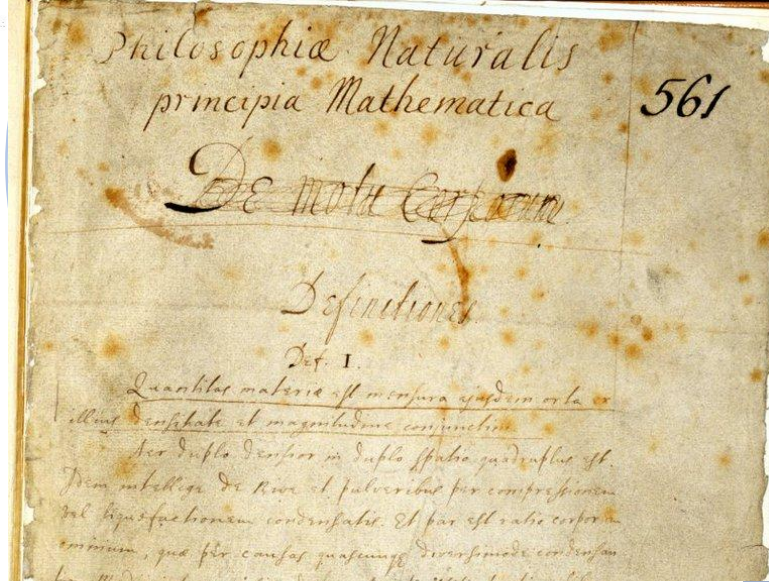 Philosophiæ Naturalis
principia Mathematica
561
De motu Corporum
Definitiones
Def. I.
Quantitas materiæ est mensura ejusdem orta ex
illius densitate et magnitudine conjunctim
Aer duplo densior in duplo spatio quadruplus est.
Idem intellige de Nive et pulveribus per compressionem
vel liquefactionem condensatis. Et par est ratio corporum
omnium, quæ per causas quascunq diversimode condensan